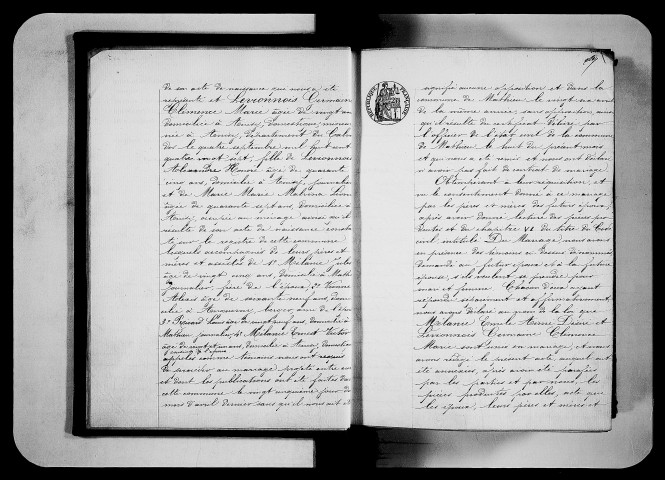 de son acte de naissance qui nous a été
représenté et Levionnois Germain
Clémence Marie âgée de vingt ans
domiciliée à domestique
née à département du Calva
dos le quatre septembre mil huit cent
quatre vingt sept, fille de Levionnois
Alexandre Honoré âgé de quarante
cinq ans, domicilié à journalier
et de Marie Marie
âgée de quarante sept ans, domiciliée à
occupée au ménage ainsi qu'il
résulte de son acte de naissance
sur le registre de cette commune
lesquels accompagnés de leurs pères et
mères et assistés de 1° Mélanie Jules
âgé de vingt cinq ans, domicilié à Math
journalier, frère de l'époux 2°
âgé de soixante neuf ans, domi
cilié à oncle de l'époux
3° Louis âgé de vingt neuf ans, domicilié à
Mathieu, journalier 4° Mélanie Ernest Victor
âgé de vingt ans, domicilié à domestique
appelés comme témoins nous ont requis
de procéder au mariage projeté entre eux
et dont les publications ont été faites dans
cette commune le vingt cinquième jour du
mois d'avril dernier sans qu'il nous ait été
signifié aucune opposition et dans la
commune de Mathieu le vingt
de la même année, sans opposition, ainsi
que il résulte du certificat délivré par
l'officier de l'état civil de la commune
de Mathieu le huit du présent mois
et qui nous a été remis et nous ont déclaré
n'avoir pas fait de contrat de mariage
Obtempérant à leur réquisition, et
vu le consentement donné à ce mariage
par les pères et mères des futurs époux,
après avoir donné lecture des pièces pro
duites et du chapitre VI du titre du Code
civil intitulé Du Mariage, nous avons
en présence des témoins ci dessus dénommés
demandé au futur époux et à la future
épouse, s'ils veulent se prendre pour
mari et femme. Chacun d'eux ayant
répondu séparément et affirmativement,
nous avons déclaré au nom de la loi que
Mélanie Emile Aimé Désiré et
Levionnois Germaine Clémence
Marie sont unis en mariage, et nous
avons rédigé le présent acte auquel ont
été annexées, après avoir été paraphées
par les parties et par nous, les
pièces produites par elles, acte que
les époux, leurs pères et mères et